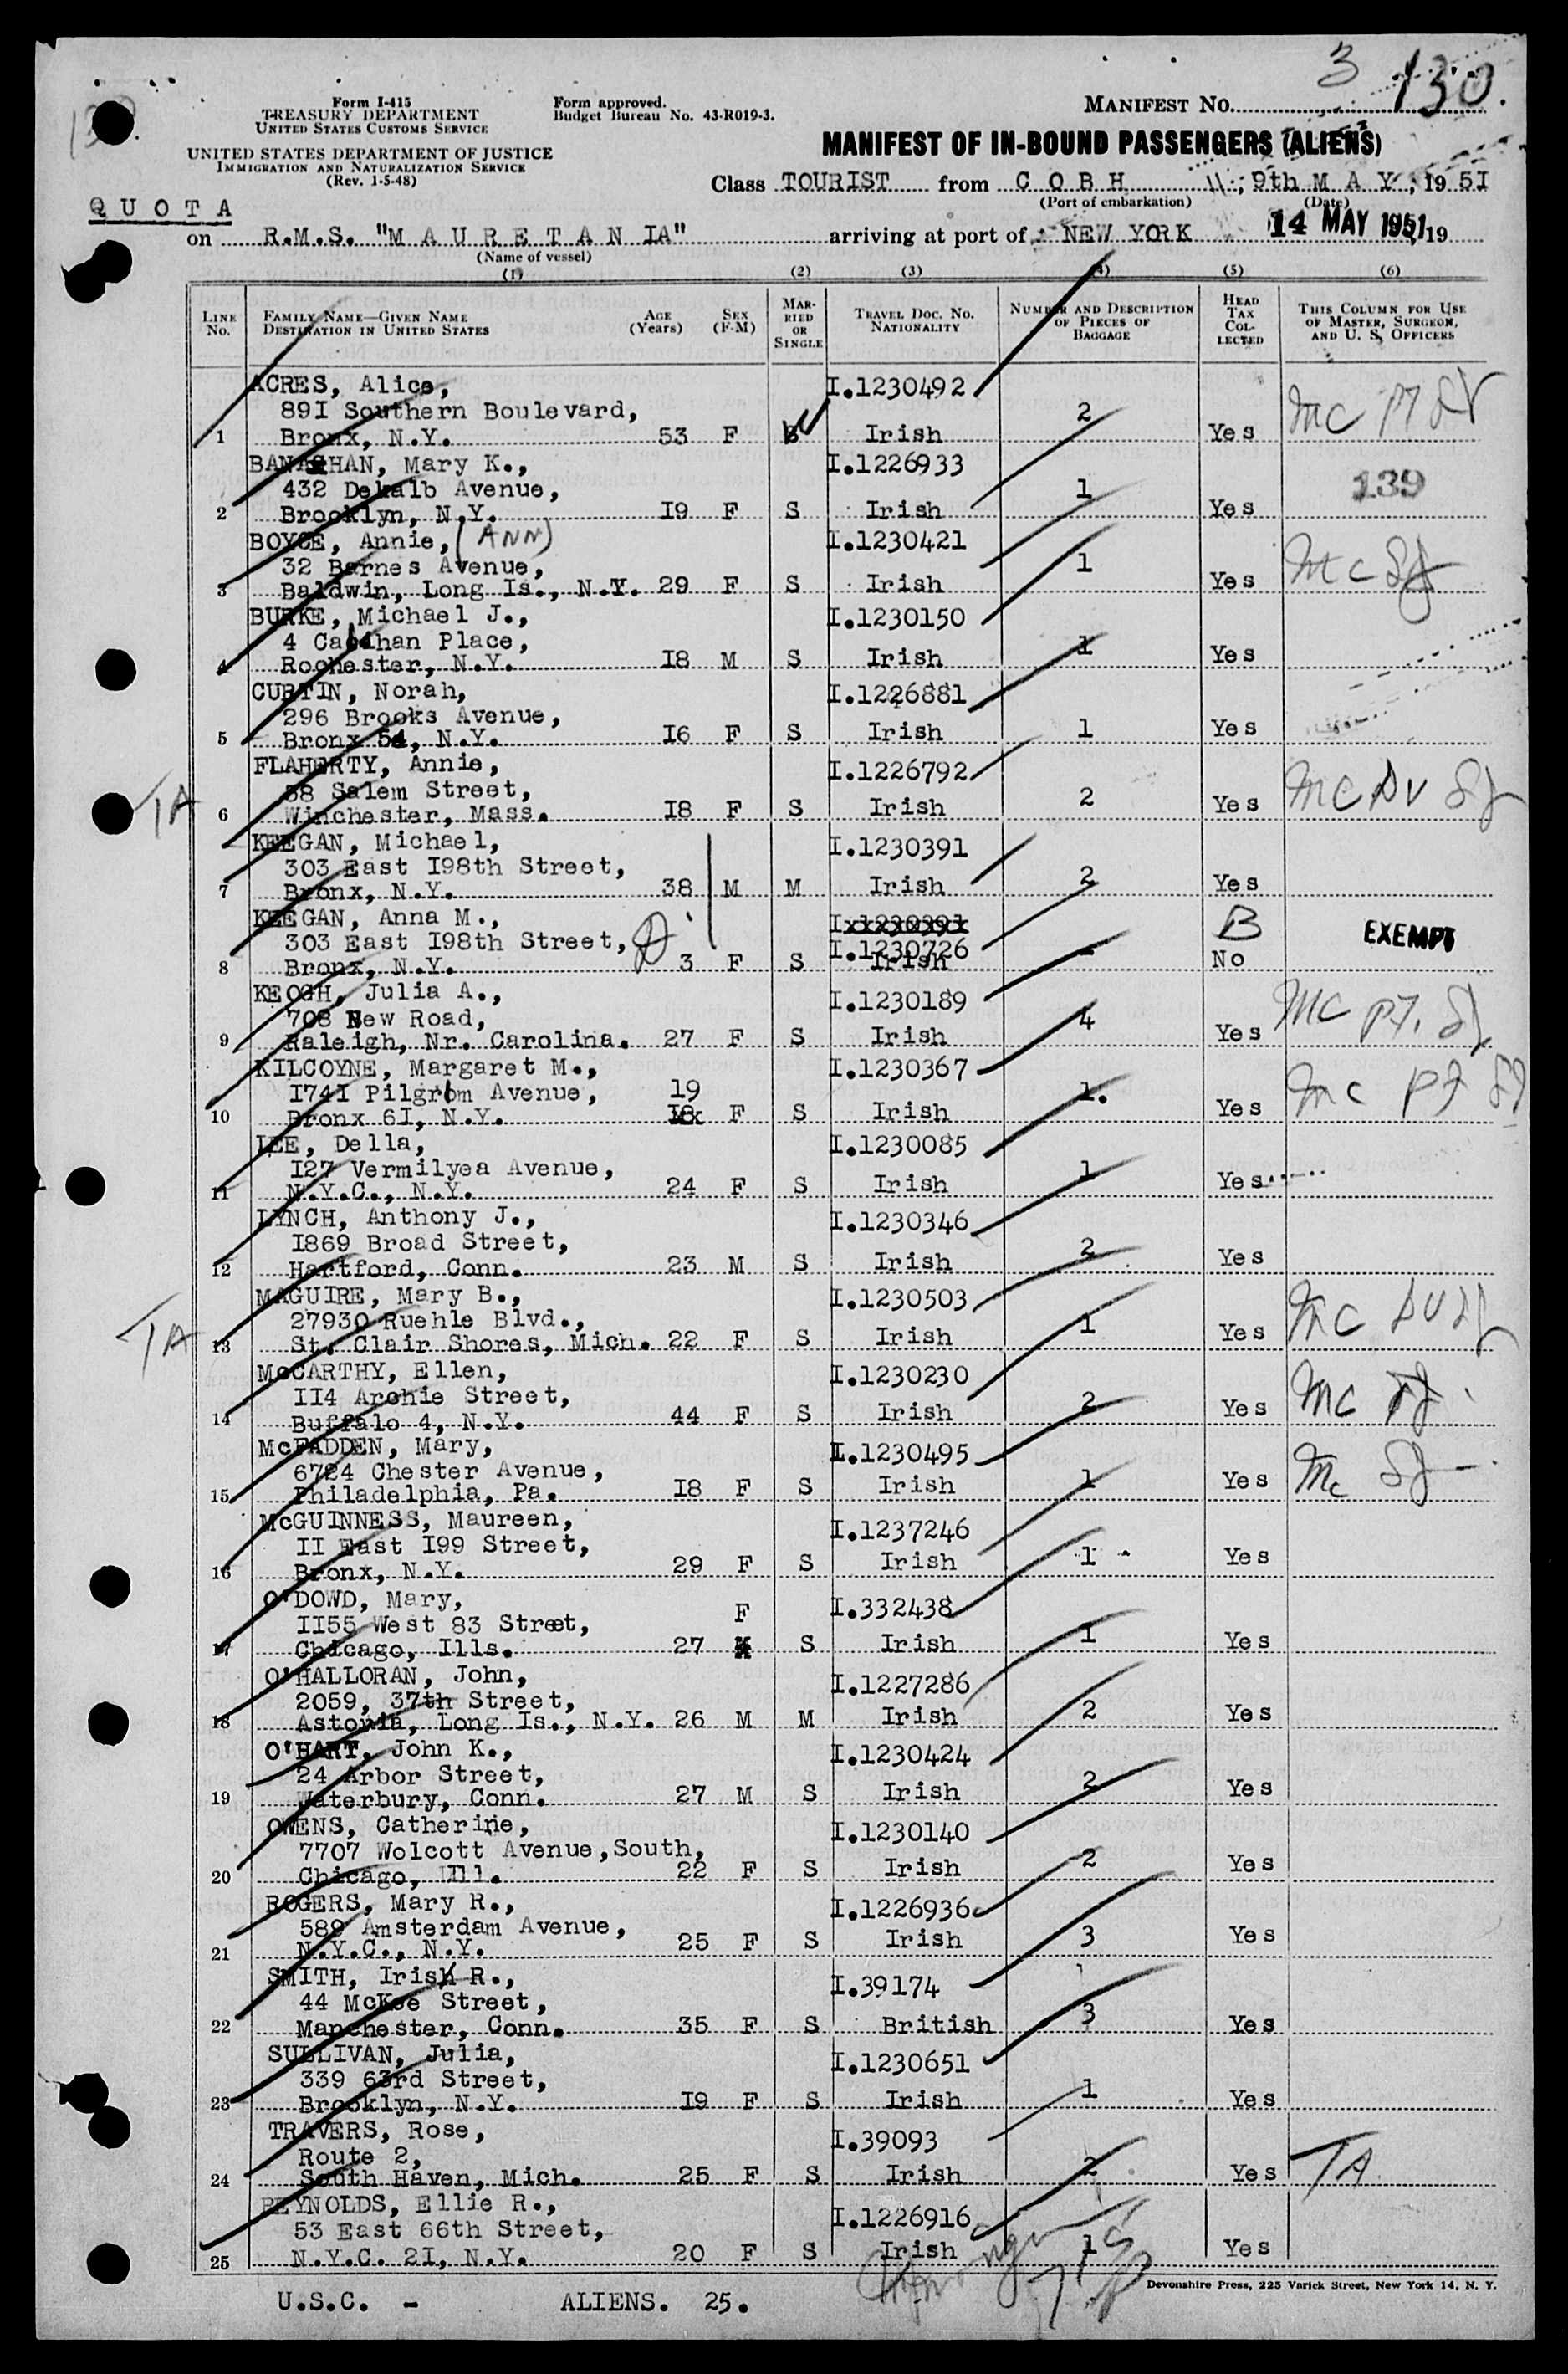 3 130.
Form I-415
TREASURY DEPARTMENT
UNITED STATES CUSTOMS SERVICE
UNITED STATES DEPARTMENT OF JUSTICE
IMMIGRATION AND NATURALIZATION SERVICE
(Rev. 1-5-48)
Form approved.
Budget Bureau No. 43-R019-3.
MANIFEST NO.
MANIFEST OF IN-BOUND PASSENGERS (ALIENS)
Class TOURIST from C O B H, 9th M A Y, 19 5I
(Port of embarkation) (Date)
Q U O T A
on R.M.S. "M A U R E T A N IA" arriving at port of NEW YORK 14 MAY 1951, 19
(Name of vessel)
(1) (2) (3) (4) (5) (6)
LINE NO. FAMILY NAME—GIVEN NAME DESTINATION IN UNITED STATES AGE (Years) SEX (F-M) MARRIED OR SINGLE TRAVEL DOC. NO. NATIONALITY NUMBER AND DESCRIPTION OF PIECES OF BAGGAGE HEAD TAX COLLECTED THIS COLUMN FOR USE OF MASTER, SURGEON, AND U. S. OFFICERS
ACRES, Alice, I.1230492
89I Southern Boulevard, 2 MC PT
1 Bronx, N.Y. 53 F Irish Yes
BANASHAN, Mary K., I.1226933
432 Dekalb Avenue, 1 139
2 Brooklyn, N.Y. I9 F S Irish Yes
BOYCE, Annie, (ANN) I.1230421
32 Barnes Avenue, 1 MC
3 Baldwin, Long Is., N.Y. 29 F S Irish Yes
BURKE, Michael J., I.1230150
4 Place, 1
4 Rochester, N.Y. I8 M S Irish Yes
CURTIN, Norah, I.1226881
296 Brooks Avenue,
5 Bronx 54, N.Y. I6 F S Irish 1 Yes
FLAHERTY, Annie, I.1226792
38 Salem Street, 2 MC
TA 6 Winchester, Mass. I8 F S Irish Yes
KEEGAN, Michael, I.1230391
303 East I98th Street, 2
7 Bronx, N.Y. 38 M M Irish Yes
KEEGAN, Anna M., Ixxxxxxxx B EXEMPT
303 East I98th Street, I.1230726
8 Bronx, N.Y. 3 F S Irish - No
KEOGH, Julia A., I.1230189
708 New Road, 4 MC PT.
9 Raleigh, Nr. Carolina. 27 F S Irish Yes
KILCOYNE, Margaret M., I.1230367
I74I Pilgrim Avenue, 19 1. MC
10 Bronx 6I, N.Y. I8x F S Irish Yes
LEE, Della, I.1230085
I27 Vermilyea Avenue, 1
11 N.Y.C., N.Y. 24 F S Irish Yes
LYNCH, Anthony J., I.1230346
I869 Broad Street, 2
12 Hartford, Conn. 23 M S Irish Yes
MAGUIRE, Mary B., I.1230503
27930 Ruehle Blvd., 1 MC
TA 13 St. Clair Shores, Mich. 22 F S Irish Yes
McCARTHY, Ellen, I.1230230
II4 Archie Street, 2 MC
14 Buffalo 4, N.Y. 44 F S Irish Yes
McFADDEN, Mary, I.1230495
6724 Chester Avenue, 1 Mc
15 Philadelphia, Pa. I8 F S Irish Yes
McGUINNESS, Maureen, I.1237246
II East I99 Street, 1
16 Bronx, N.Y. 29 F S Irish Yes
O'DOWD, Mary, F I.332438
II55 West 83 Street, 1
17 Chicago, Ills. 27 S Irish Yes
O'HALLORAN, John, I.1227286
2059, 37th Street, 2
18 Astoria, Long Is., N.Y. 26 M M Irish Yes
O'HART, John K., I.1230424
24 Arbor Street, 2
19 Waterbury, Conn. 27 M S Irish Yes
OWENS, Catherine, I.1230140
7707 Wolcott Avenue, South, 2
20 Chicago, Ill. 22 F S Irish Yes
ROGERS, Mary R., I.1226936
589 Amsterdam Avenue, 3
21 N.Y.C., N.Y. 25 F S Irish Yes
SMITH, Irish R., I.39174
44 McKee Street, 3
22 Manchester, Conn. 35 F S British Yes
SULLIVAN, Julia, I.1230651
339 63rd Street, 1
23 Brooklyn, N.Y. I9 F S Irish Yes
TRAVERS, Rose, I.39093
Route 2, 2 TA
24 South Haven, Mich. 25 F S Irish Yes
REYNOLDS, Ellie R., I.1226916
53 East 66th Street, 1
25 N.Y.C. 2I, N.Y. 20 F S Irish Yes
Devonshire Press, 225 Varick Street, New York 14, N. Y.
U.S.C. - ALIENS. 25.